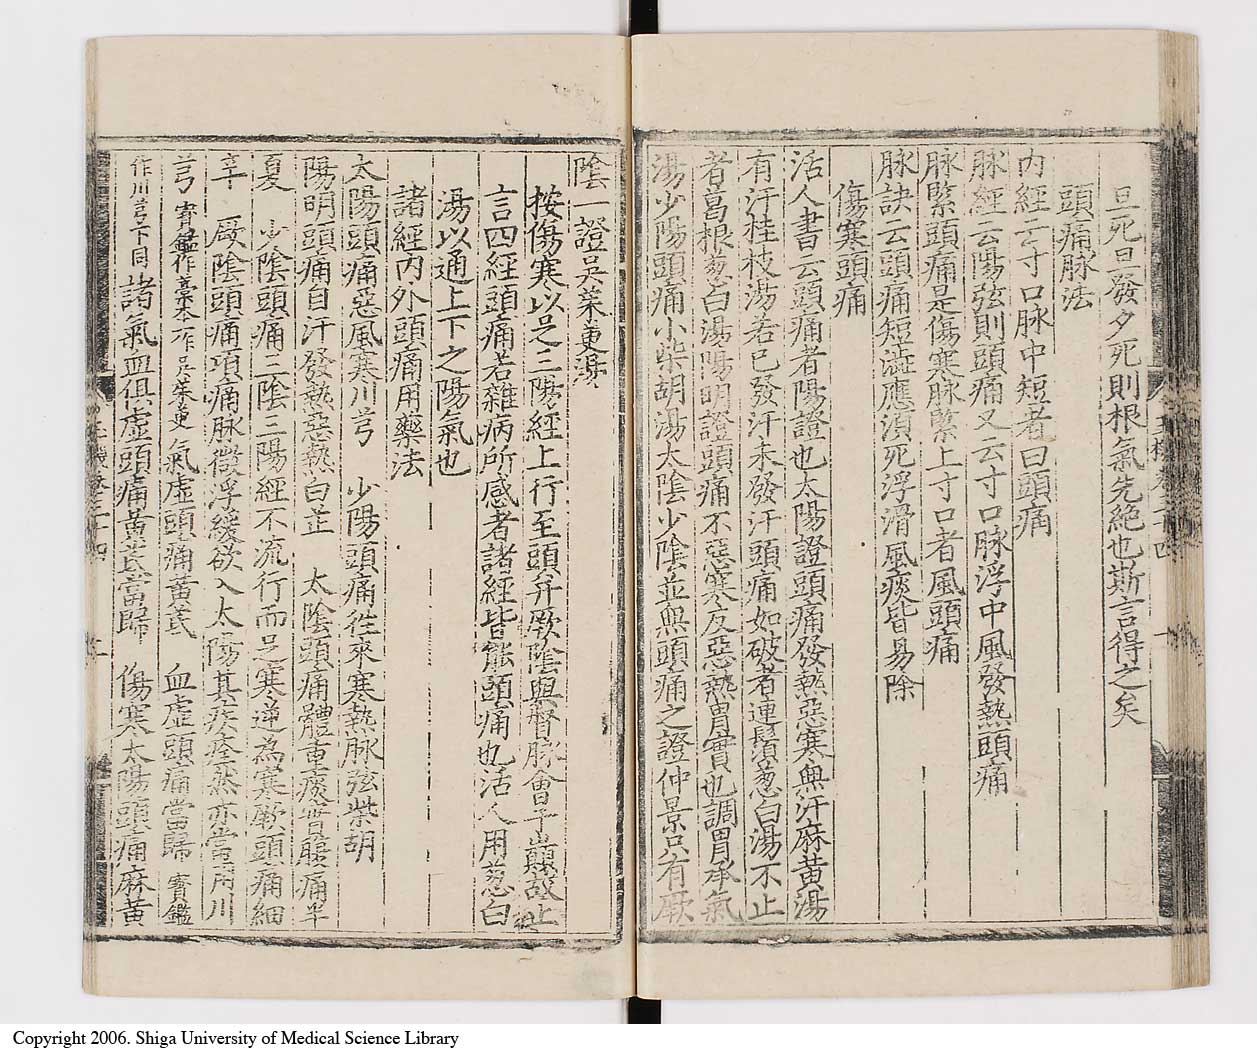 旦死旦發夕死則根氣先絶也斯言得之矣
頭痛脉法
内經云寸口脉中短者曰頭痛
脉經云陽弦則頭痛又云寸口脉浮中風發熱頭痛
脉緊頭痛是傷寒脉緊上寸口者風頭痛
脉訣云頭痛短澁應須死浮滑風痰皆易除
傷寒頭痛
活人書云頭痛者陽證也太陽證頭痛發熱惡寒無汗麻黄湯
有汗桂枝湯若已發汗未發汗頭痛如破者連鬚葱白湯不止
者葛根葱白湯陽明證頭痛不惡寒反惡熱胃實也調胃承氣
湯少陽頭痛小柴胡湯太陰少陰並無頭痛之證仲景只有厥
陰一證吴茱萸湯
按傷寒以足三陽經上行至頭并厥陰與督脉會于巔故止
言四經頭痛若雜病所感者諸經皆能頭痛也活人用葱白
湯以通上下之陽氣也
諸經内外頭痛用藥法
太陽頭痛惡風寒川芎 少陽頭痛徃來寒熱脉弦柴胡
陽明頭痛自汗發熱惡熱白芷 太陰頭痛體重痰實腹痛半
夏 少陰頭痛三陰三陽經不流行而足寒逆為寒厥頭痛細
辛 厥陰頭痛項痛脉微浮緩欲入太陽其疾痊然亦當用川
芎 寳鑑作藁本一作吴茱萸 氣虚頭痛黄芪 血虚頭痛當歸 寳鑑
作川芎下同 諸氣血俱虚頭痛黄芪當歸 傷寒太陽頭痛麻黄
玉機卷三十四
Copyright 2006. Shiga University of Medical Science Library